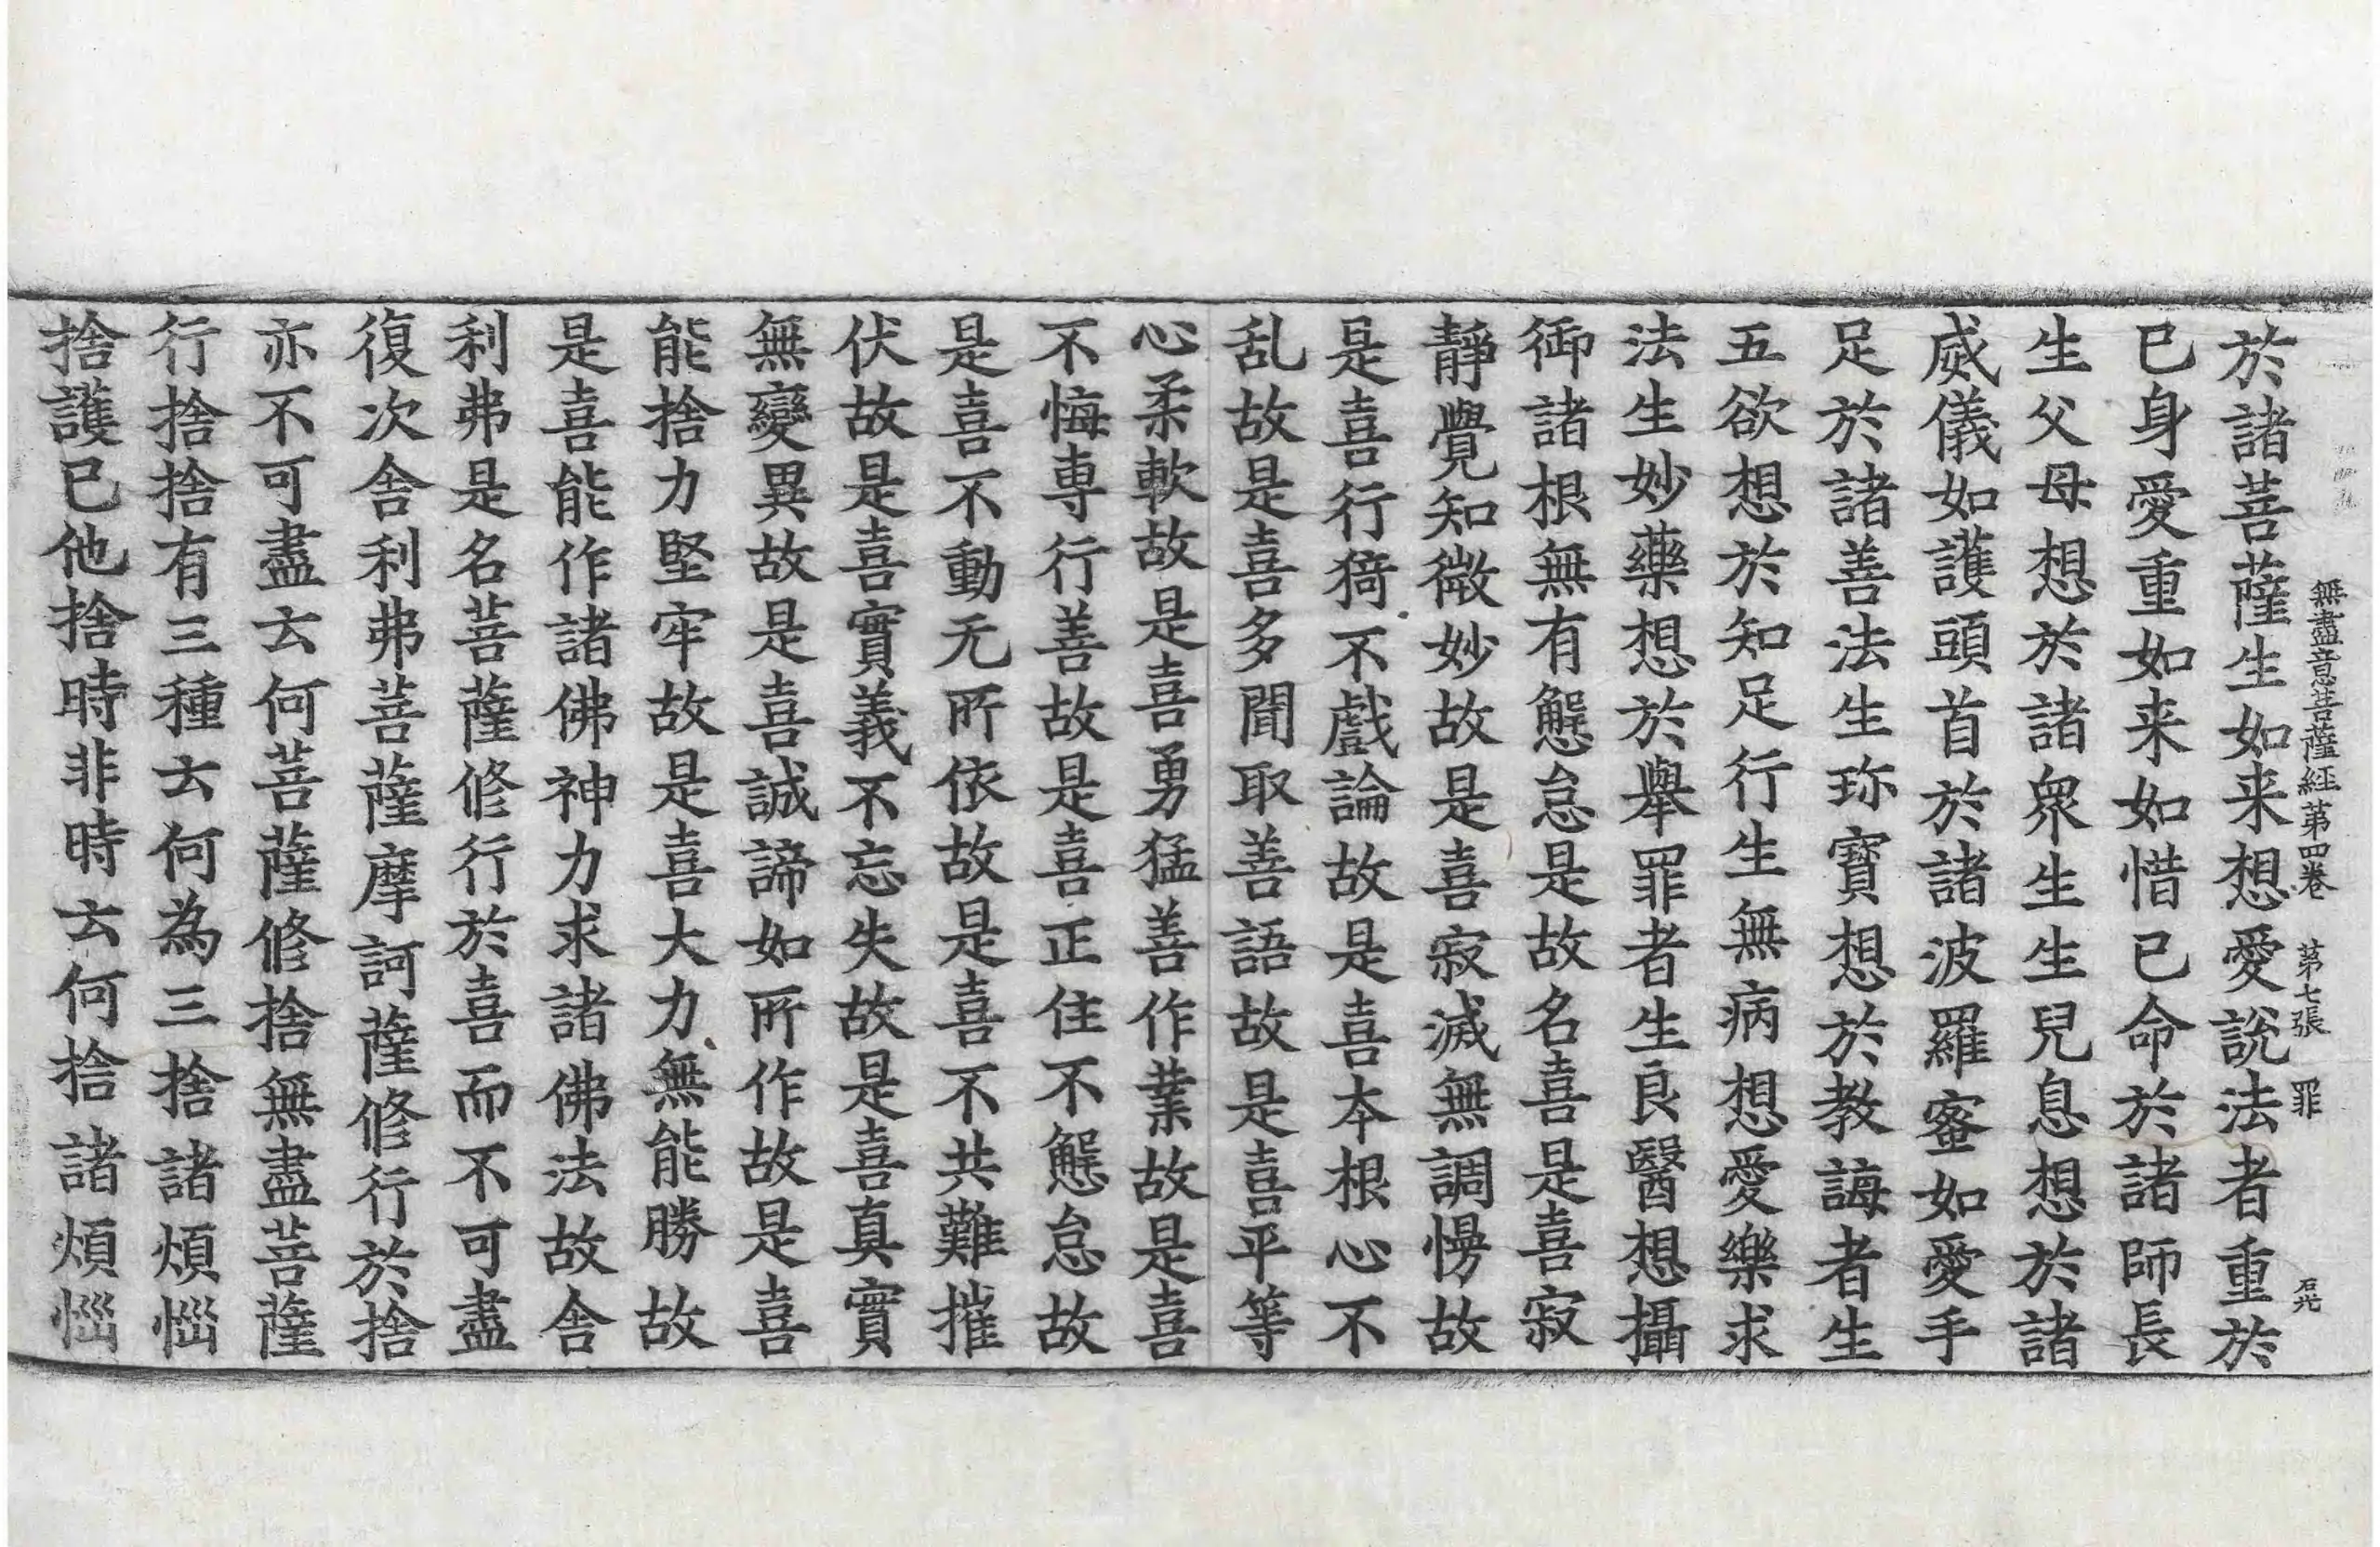 無盡意菩薩経第四卷　第七張　罪　石光
於諸菩薩生如来想愛說法者重於
已身愛重如来如惜已命於諸師長
生父母想於諸衆生生兒息想於諸
威儀如護頭首於諸波羅蜜如愛手
足於諸善法生珎寶想於教誨者生
五欲想於知足行生無病想愛樂求
法生妙藥想於舉罪者生良醫想攝
御諸根無有懈怠是故名喜是喜寂
靜覺知微妙故是喜寂滅無調慢故
是喜行猗不戲論故是喜夲根心不
乱故是喜多聞取善語故是喜平等
心柔軟故是喜勇猛善作業故是喜
不悔専行善故是喜正住不懈怠故
是喜不動无所依故是喜不共難摧
伏故是喜實義不忘失故是喜真實
無變異故是喜誠諦如所作故是喜
能捨力堅牢故是喜大力無能勝故
是喜能作諸佛神力求諸佛法故舍
利弗是名菩薩修行於喜而不可盡
復次舍利弗菩薩摩訶薩修行於捨
亦不可盡云何菩薩修捨無盡菩薩
行捨捨有三種云何為三捨諸煩惱
捨護已他捨時非時云何捨諸煩惱